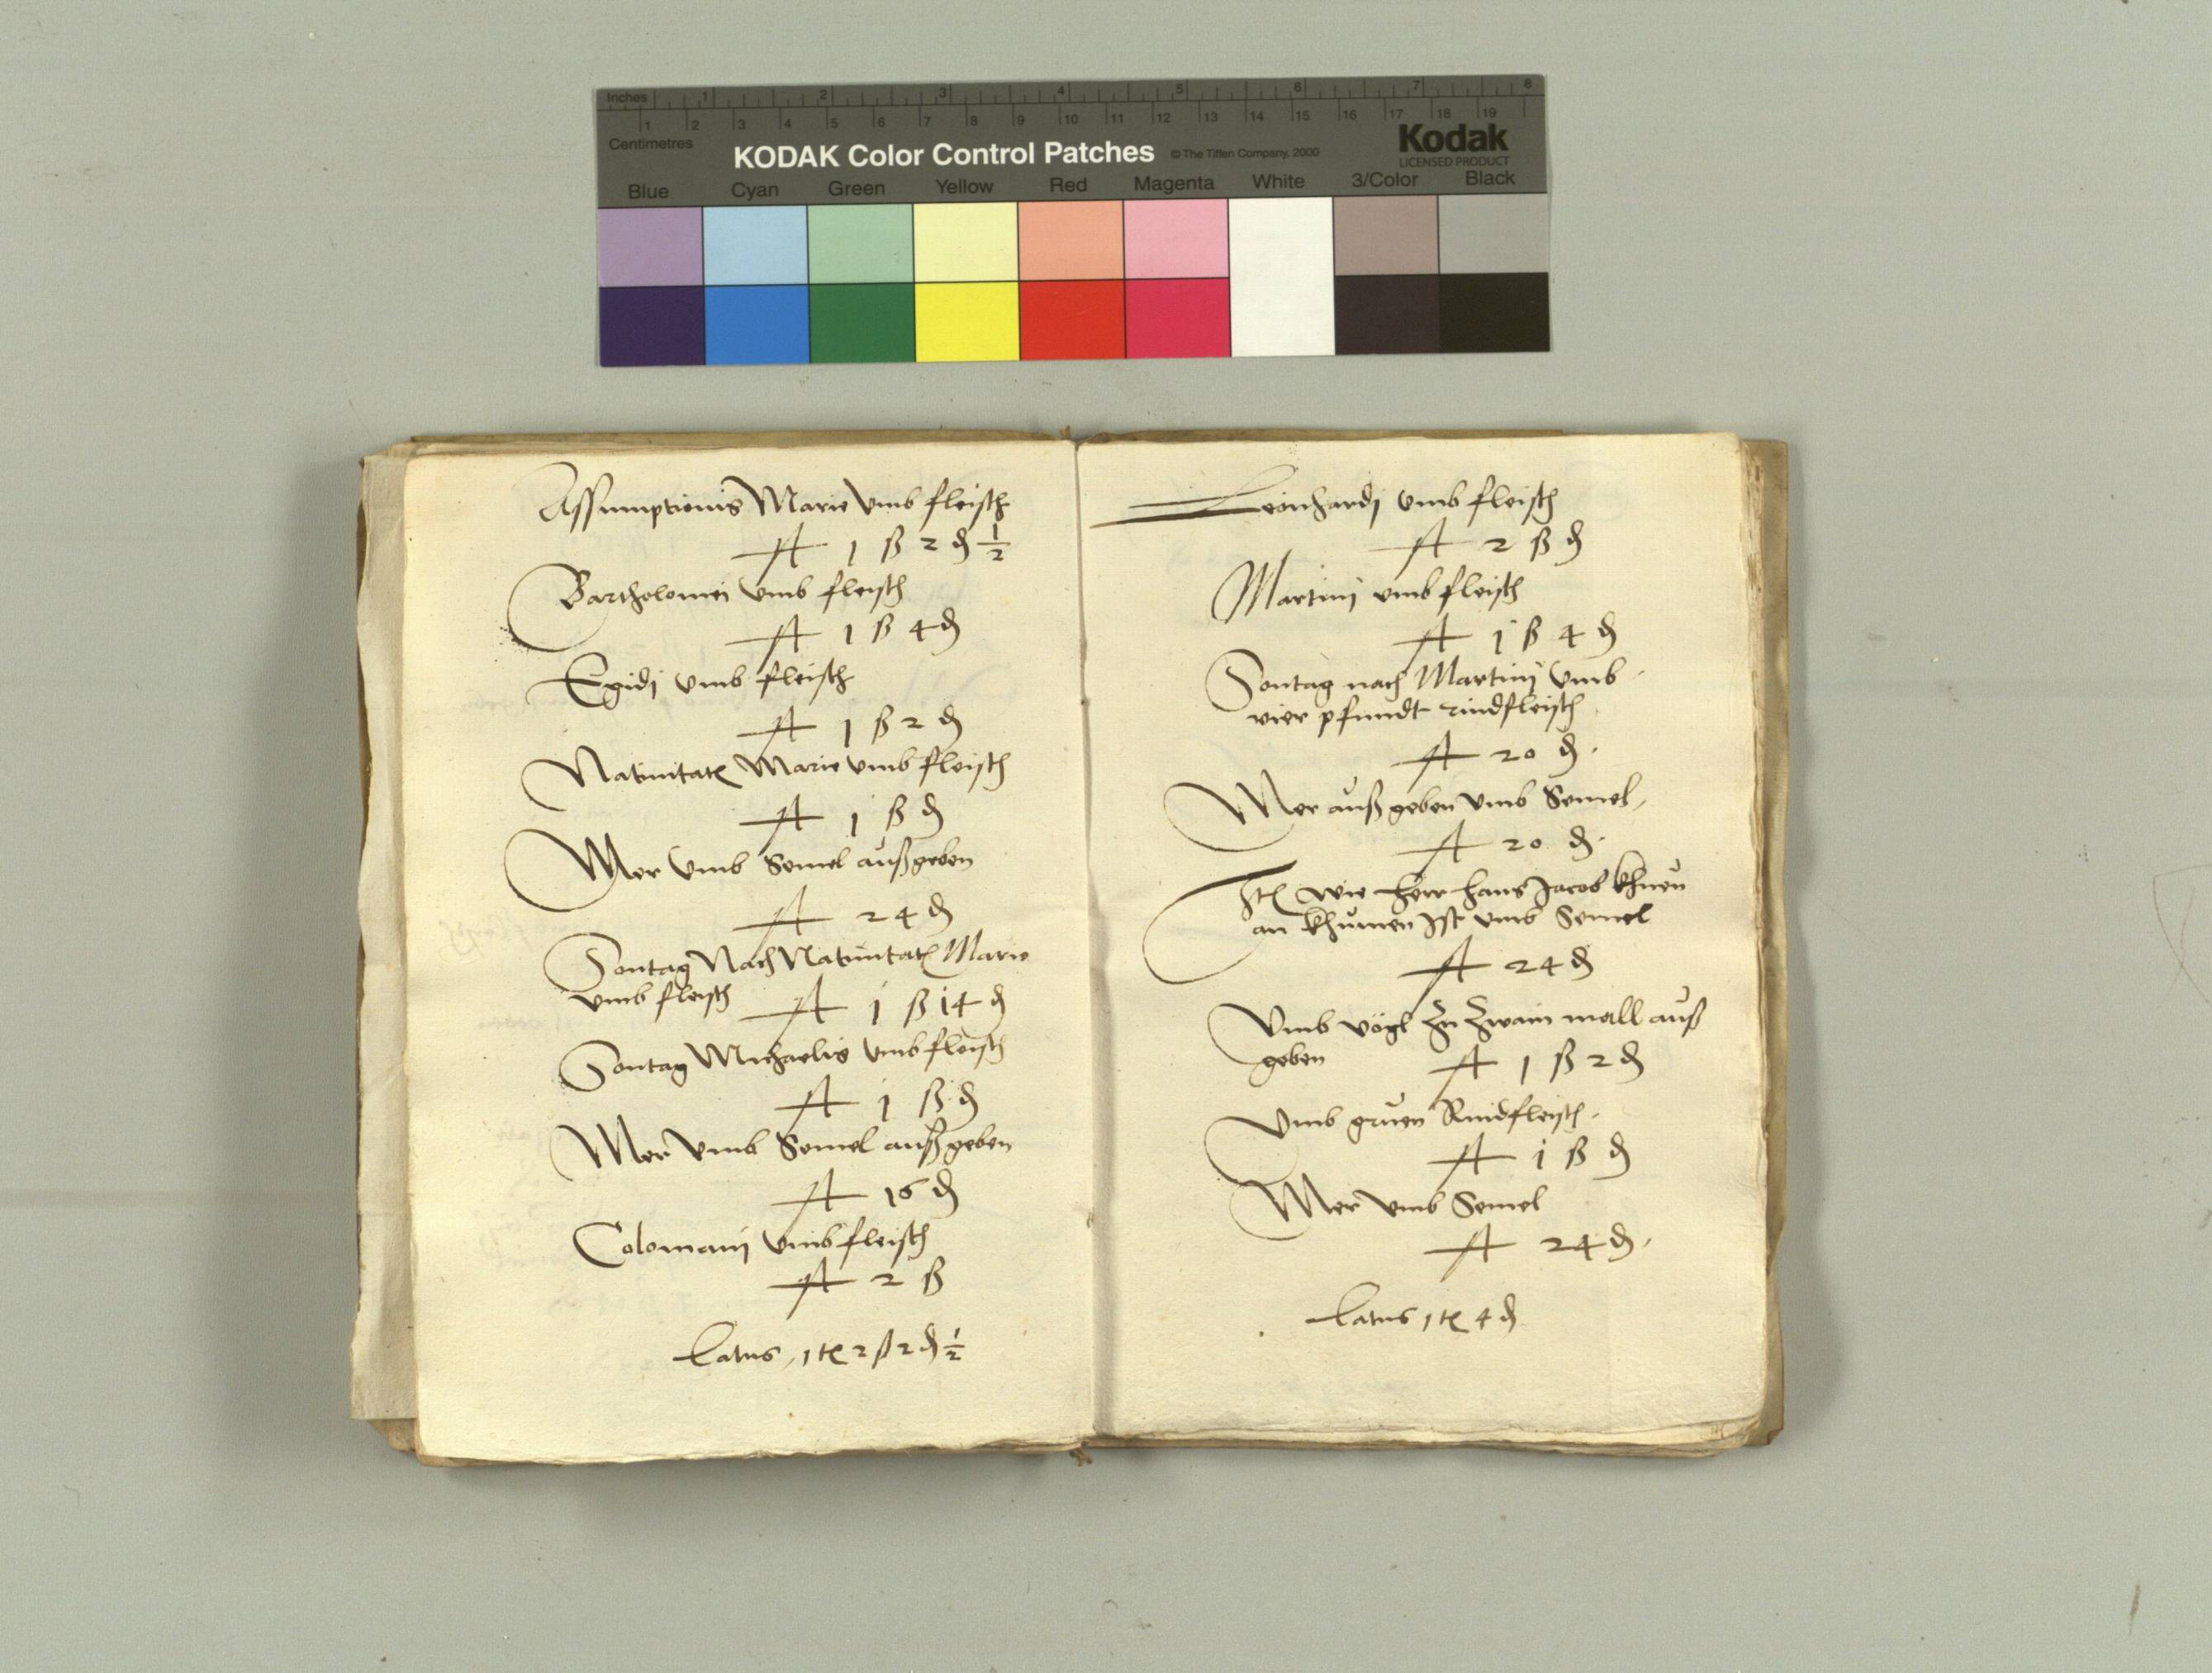 Inches 1 2 3 4 5 6 7 8
1 2 3 4 5 6 7 8 9 10 11 12 13 14 15 16 17 18 19
Centimetres
KODAK Color Control Patches © The Tiffen Company, 2000 Kodak
LICENSED PRODUCT
Blue Cyan Green Yellow Red Magenta White 3/Color Black
Assumptionis Marie vmb fleisch
A 1 ß 2 ₰ ½
Bartholomei vmb fleisch
A 1 ß 4 ₰
Egidj vmb fleisch
A 1 ß 2 ₰
Natiuitatꝭ Marie vmb fleisch
A 1 ß ₰
Mer vmb Semel außgeben
A 24 ₰
Sontag Nach Natiuitatꝭ Marie
vmb fleisch A 1 ß 14 ₰
Sontag Michaelis vmb fleisch
A 1 ß ₰
Mer vmb Semel außgeben
A 16 ₰
Colomanj vmb fleisch
A 2 ß
Latus 1 tꝭ 2 ß 2 ₰ ½
Leonhardj vmb fleisch
A 2 ß ₰
Martinj vmb fleisch
A 1 ß 4 ₰
Sontag nach Martinj vmb
vier pfundt rindfleisch
A 20 ₰.
Mer außgeben vmb Semel
A 20 ₰.
Itꝭ wie herr hans Jacob khuen
an khumen Ist vmb Semel
A 24 ₰
Vmb vögl Zu Zwain mall auß
geben A 1 ß 2 ₰
Vmb gruen Rindfleisch.
A 1 ß ₰
Mer vmb Semel
A 24 ₰.
Latus 1 tꝭ 4 ₰